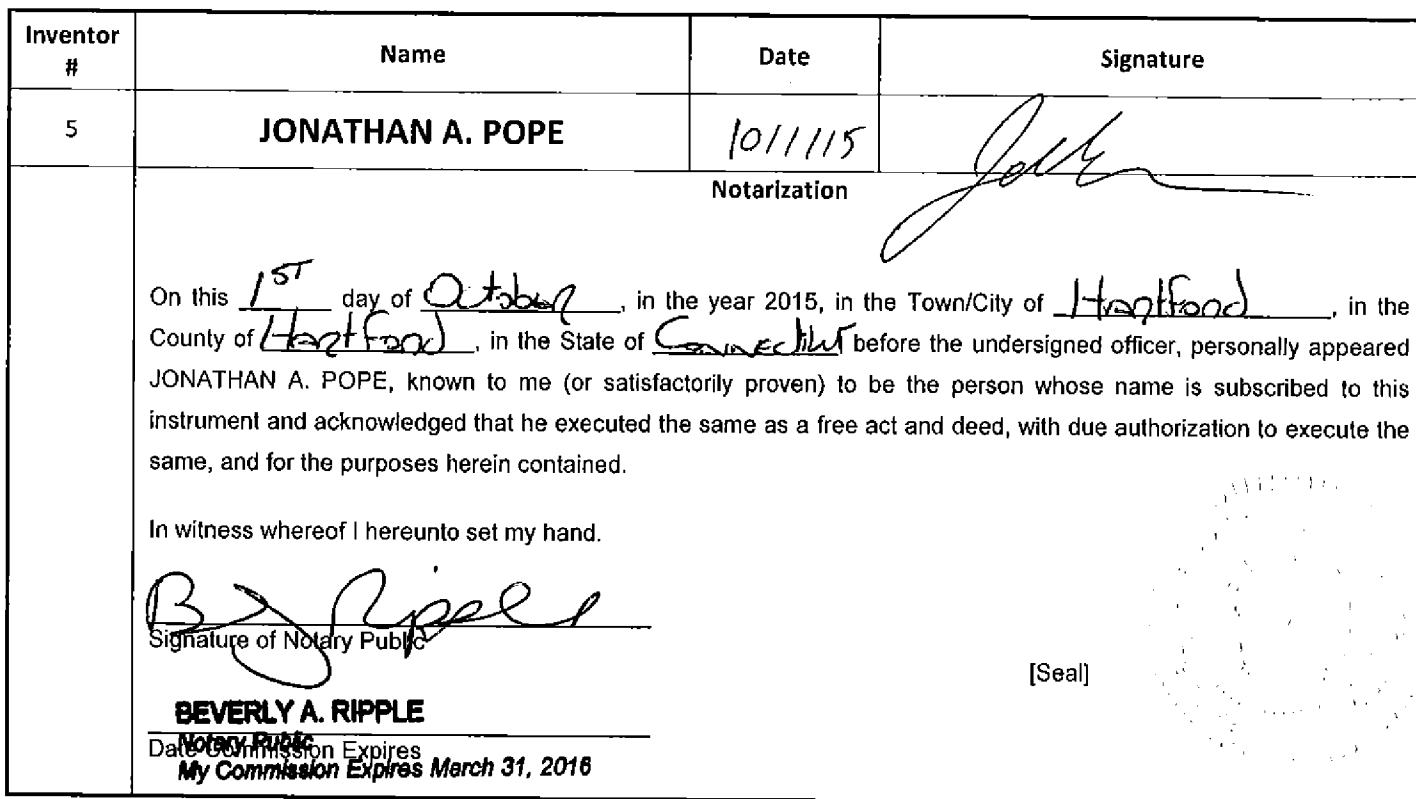 Inventor # Name Date Signature
5 JONATHAN A. POPE 10/1/15
Notarization
On this 1ST day of October, in the year 2015, in the Town/City of Hartford, in the
County of Hartford, in the State of Connecticut before the undersigned officer, personally appeared
JONATHAN A. POPE, known to me (or satisfactorily proven) to be the person whose name is subscribed to this
instrument and acknowledged that he executed the same as a free act and deed, with due authorization to execute the
same, and for the purposes herein contained.
In witness whereof I hereunto set my hand.
B Ripple
Signature of Notary Public
[Seal]
BEVERLY A. RIPPLE
Notary Public
Date Commission Expires
My Commission Expires March 31, 2016